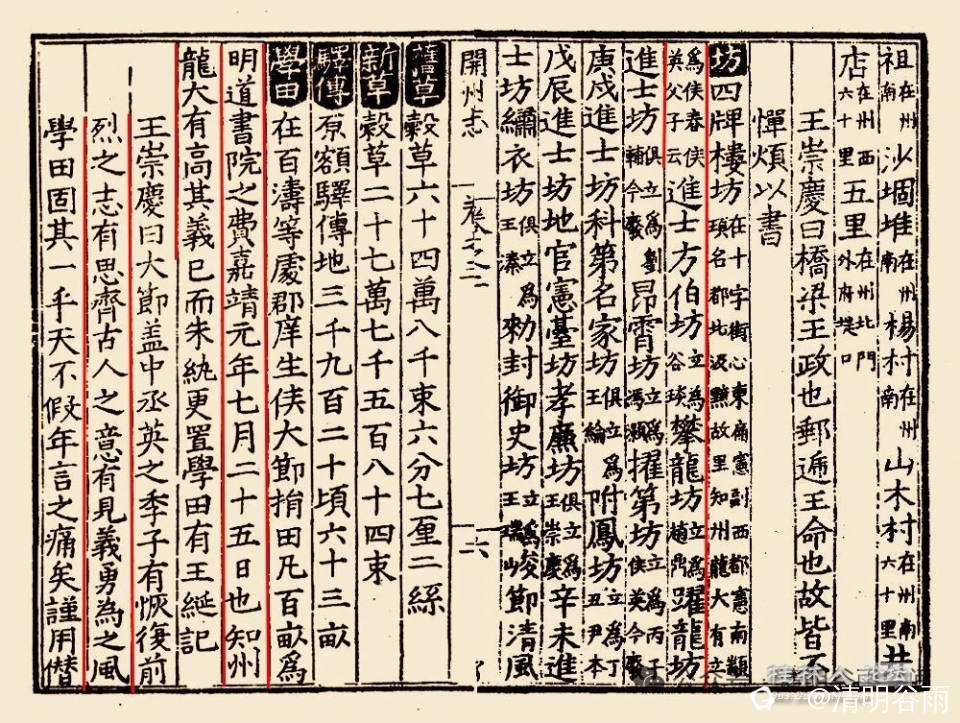 祖在州南 沙堌堆在州南 楊村在州南 山木村在州南六十里 井
店在州西六十里 五里在州北門外府堤口
王崇慶曰橋梁王政也郵逓王命也故皆不
憚煩以書
坊 四牌樓坊在十字街心東痛憲副西都憲南顓頊名郡北汲黯故里知州龍大有立
為侯春侯英父子云 進士方伯坊立為谷琰 攀龍坊立為趙鼎 躍龍坊
進士坊俱立為劉輔今廢 昂霄坊立為馮灝 擢第坊立為丙子侯英今廢
庚戌進士坊科第名家坊俱立為王綸 附鳳坊立為丁丑尹本
戊辰進士坊地官憲臺坊孝廉坊俱立為王崇慶 辛未進
士坊繡衣坊俱立為王溱 勑封御史坊立為王瑞山 峻節清風
開州志 卷之三 十六
舊草 穀草六十四萬八千束六分七厘三絲
新草 穀草二十七萬七千五百八十四束
驛傳 原額驛傳地三千九百二十頃六十三畝
學田 在百濤等處郡庠生侯大節捐田凡百畝為
明道書院之費嘉靖元年七月二十五日也知州
龍大有高其義已而朱紈更置學田有王綖記
王崇慶曰大節盖中丞英之季子有恢復前
烈之志有思齊古人之意有見義勇為之風
學田固其一乎天不假年言之痛矣謹用僭
@清明谷雨